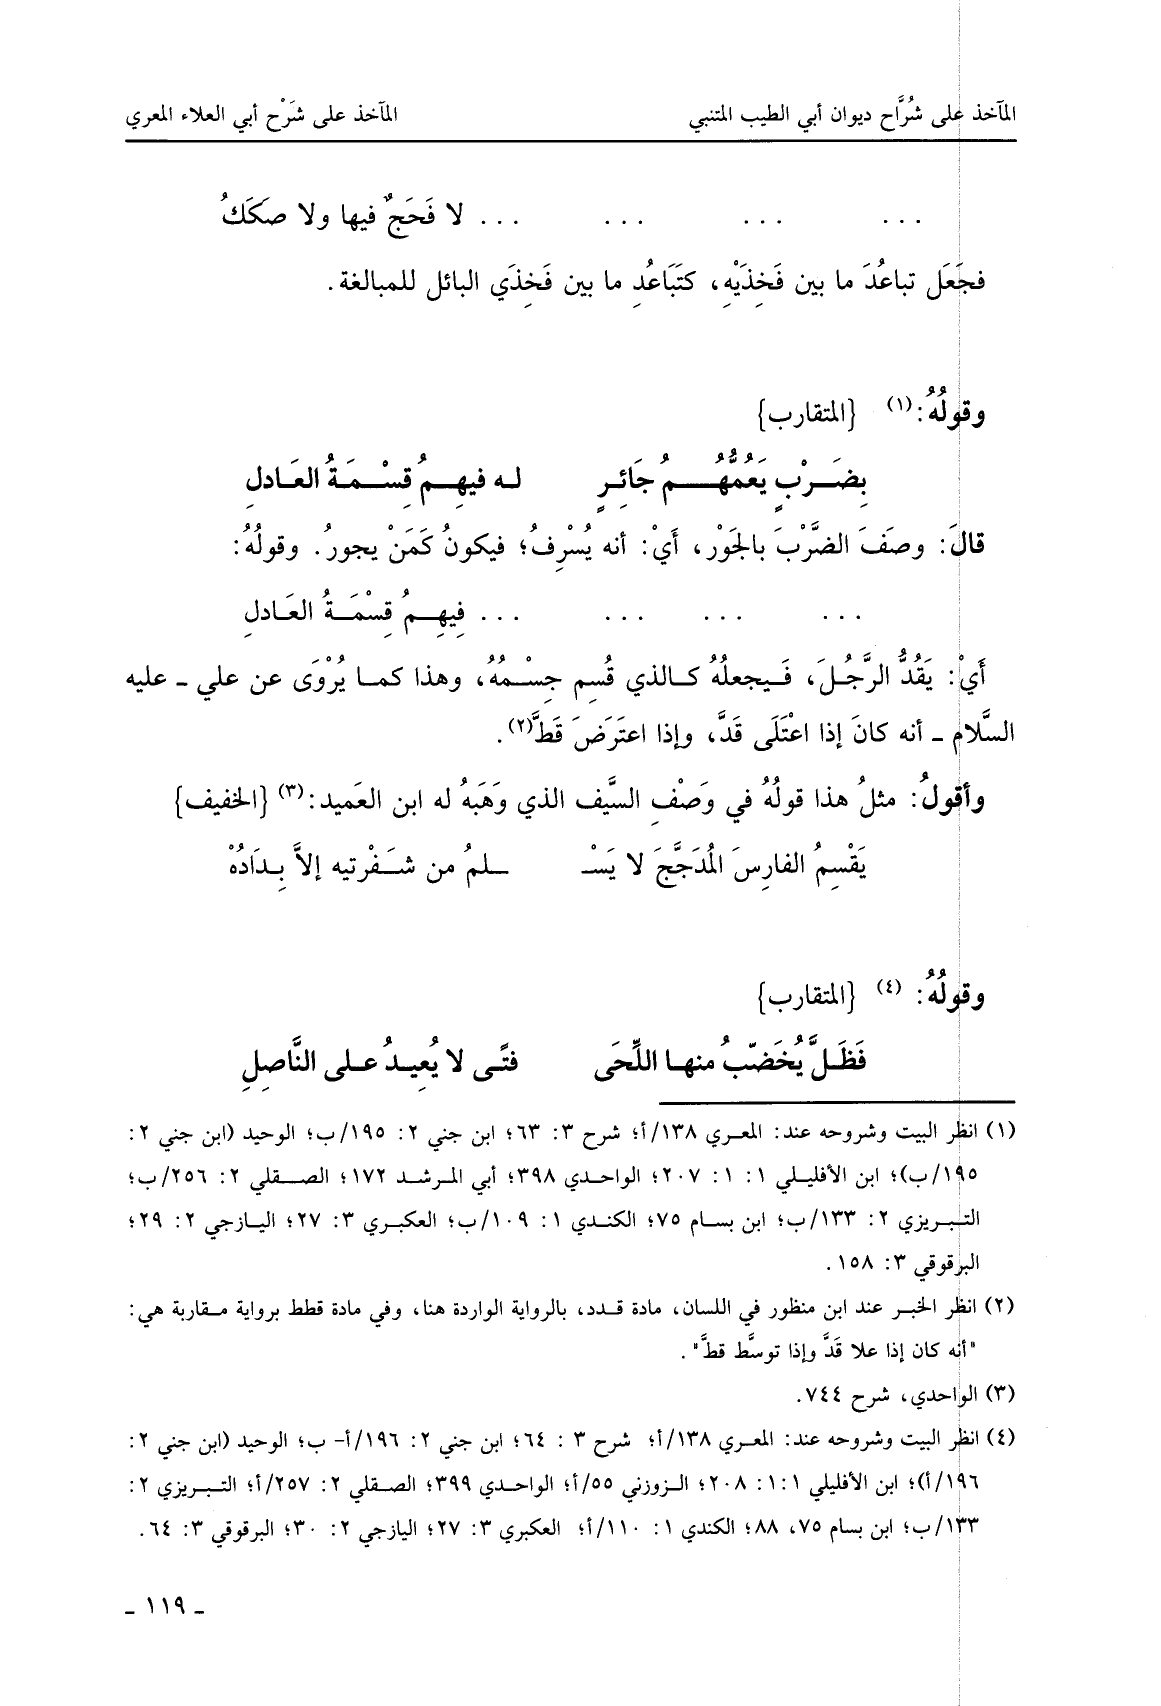 المآخذ على شُرَّاح ديوان أبي الطيب المتنبي المآخذ على شَرْح أبي العلاء المعري
... ... ... ... لا فَحَجٌ فيها ولا صَكَكُ
فجَعَل تباعُدَ ما بين فَخِذَيْهِ، كتَبَاعُدِ ما بين فَخِذَي البائل للمبالغة.
وقولُهُ:(١) {المتقارب}
بِضَرْبٍ يَعُمُّهُمُ جَائِرٍ له فيهِمُ قِسْمَةُ العَادلِ
قالَ: وصَفَ الضَّرْبَ بالجَوْر، أَيْ: أنه يُسْرِفُ؛ فيكونُ كَمَنْ يجورُ. وقولُهُ:
... ... ... ... فِيهِمُ قِسْمَةُ العَادلِ
أَيْ: يَقُدُّ الرَّجُلَ، فَيجعلُهُ كالذي قُسِم جِسْمُهُ، وهذا كما يُرْوَى عن علي ـ عليه
السَّلام ـ أنه كانَ إذا اعْتَلَى قَدَّ، وإذا اعتَرَضَ قَطَّ(٢).
وأقولُ: مثلُ هذا قولُهُ في وَصْفِ السيَّف الذي وَهَبَهُ له ابن العَميد:(٣) {الخفيف}
يَقْسِمُ الفارِسَ المُدَجَّجَ لا يَسْـ ـلمُ من شَفْرتيه إلاَّ بِدَادُهْ
وقولُهُ: (٤) {المتقارب}
فَظَلَّ يُخَضِّبُ منها اللِّحَى فتًى لا يُعِيدُ على النَّاصِلِ
(١) انظر البيت وشروحه عند: المعري ١٣٨/أ؛ شرح ٣: ٦٣؛ ابن جني ٢: ١٩٥/ب؛ الوحيد (ابن جني ٢:
١٩٥/ب)؛ ابن الأفليلي ١: ١: ٢٠٧؛ الواحدي ٣٩٨؛ أبي المرشد ١٧٢؛ الصقلي ٢: ٢٥٦/ب؛
التبريزي ٢: ١٣٣/ب؛ ابن بسام ٧٥؛ الكندي ١: ١٠٩/ب؛ العكبري ٣: ٢٧؛ اليازجي ٢: ٢٩؛
البرقوقي ٣: ١٥٨.
(٢) انظر الخبر عند ابن منظور في اللسان، مادة قدد، بالرواية الواردة هنا، وفي مادة قطط برواية مقاربة هي:
"أنه كان إذا علا قَدَّ وإذا توسَّط قطَّ".
(٣) الواحدي، شرح ٧٤٤.
(٤) انظر البيت وشروحه عند: المعري ١٣٨/أ؛ شرح ٣ : ٦٤؛ ابن جني ٢: ١٩٦/أ- ب؛ الوحيد (ابن جني ٢:
١٩٦/أ)؛ ابن الأفليلي ١:١: ٢٠٨؛ الزوزني ٥٥/أ؛ الواحدي ٣٩٩؛ الصقلي ٢: ٢٥٧/أ؛ التبريزي ٢:
١٣٣/ب؛ ابن بسام ٧٥، ٨٨؛ الكندي ١: ١١٠/أ؛ العكبري ٣: ٢٧؛ اليازجي ٢: ٣٠؛ البرقوقي ٣: ٦٤.
ـ ١١٩ ـ